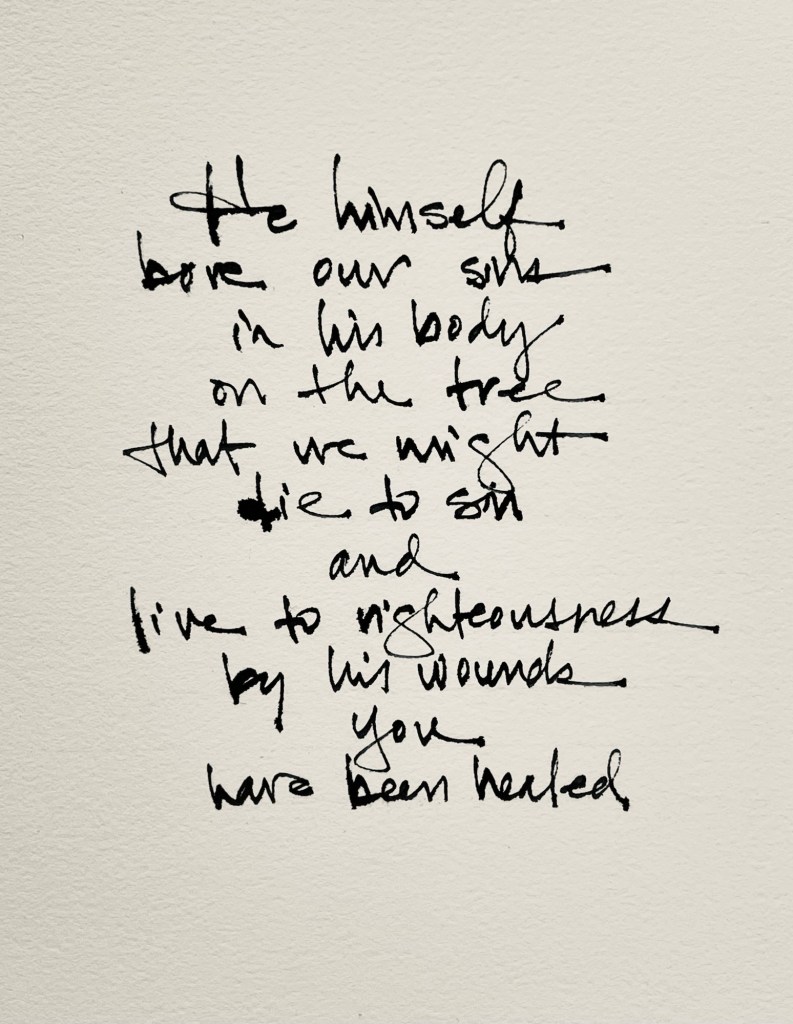 He himself
bore our sins
in his body
on the tree
that we might
die to sin
and
live to righteousness
by his wounds
you
have been healed